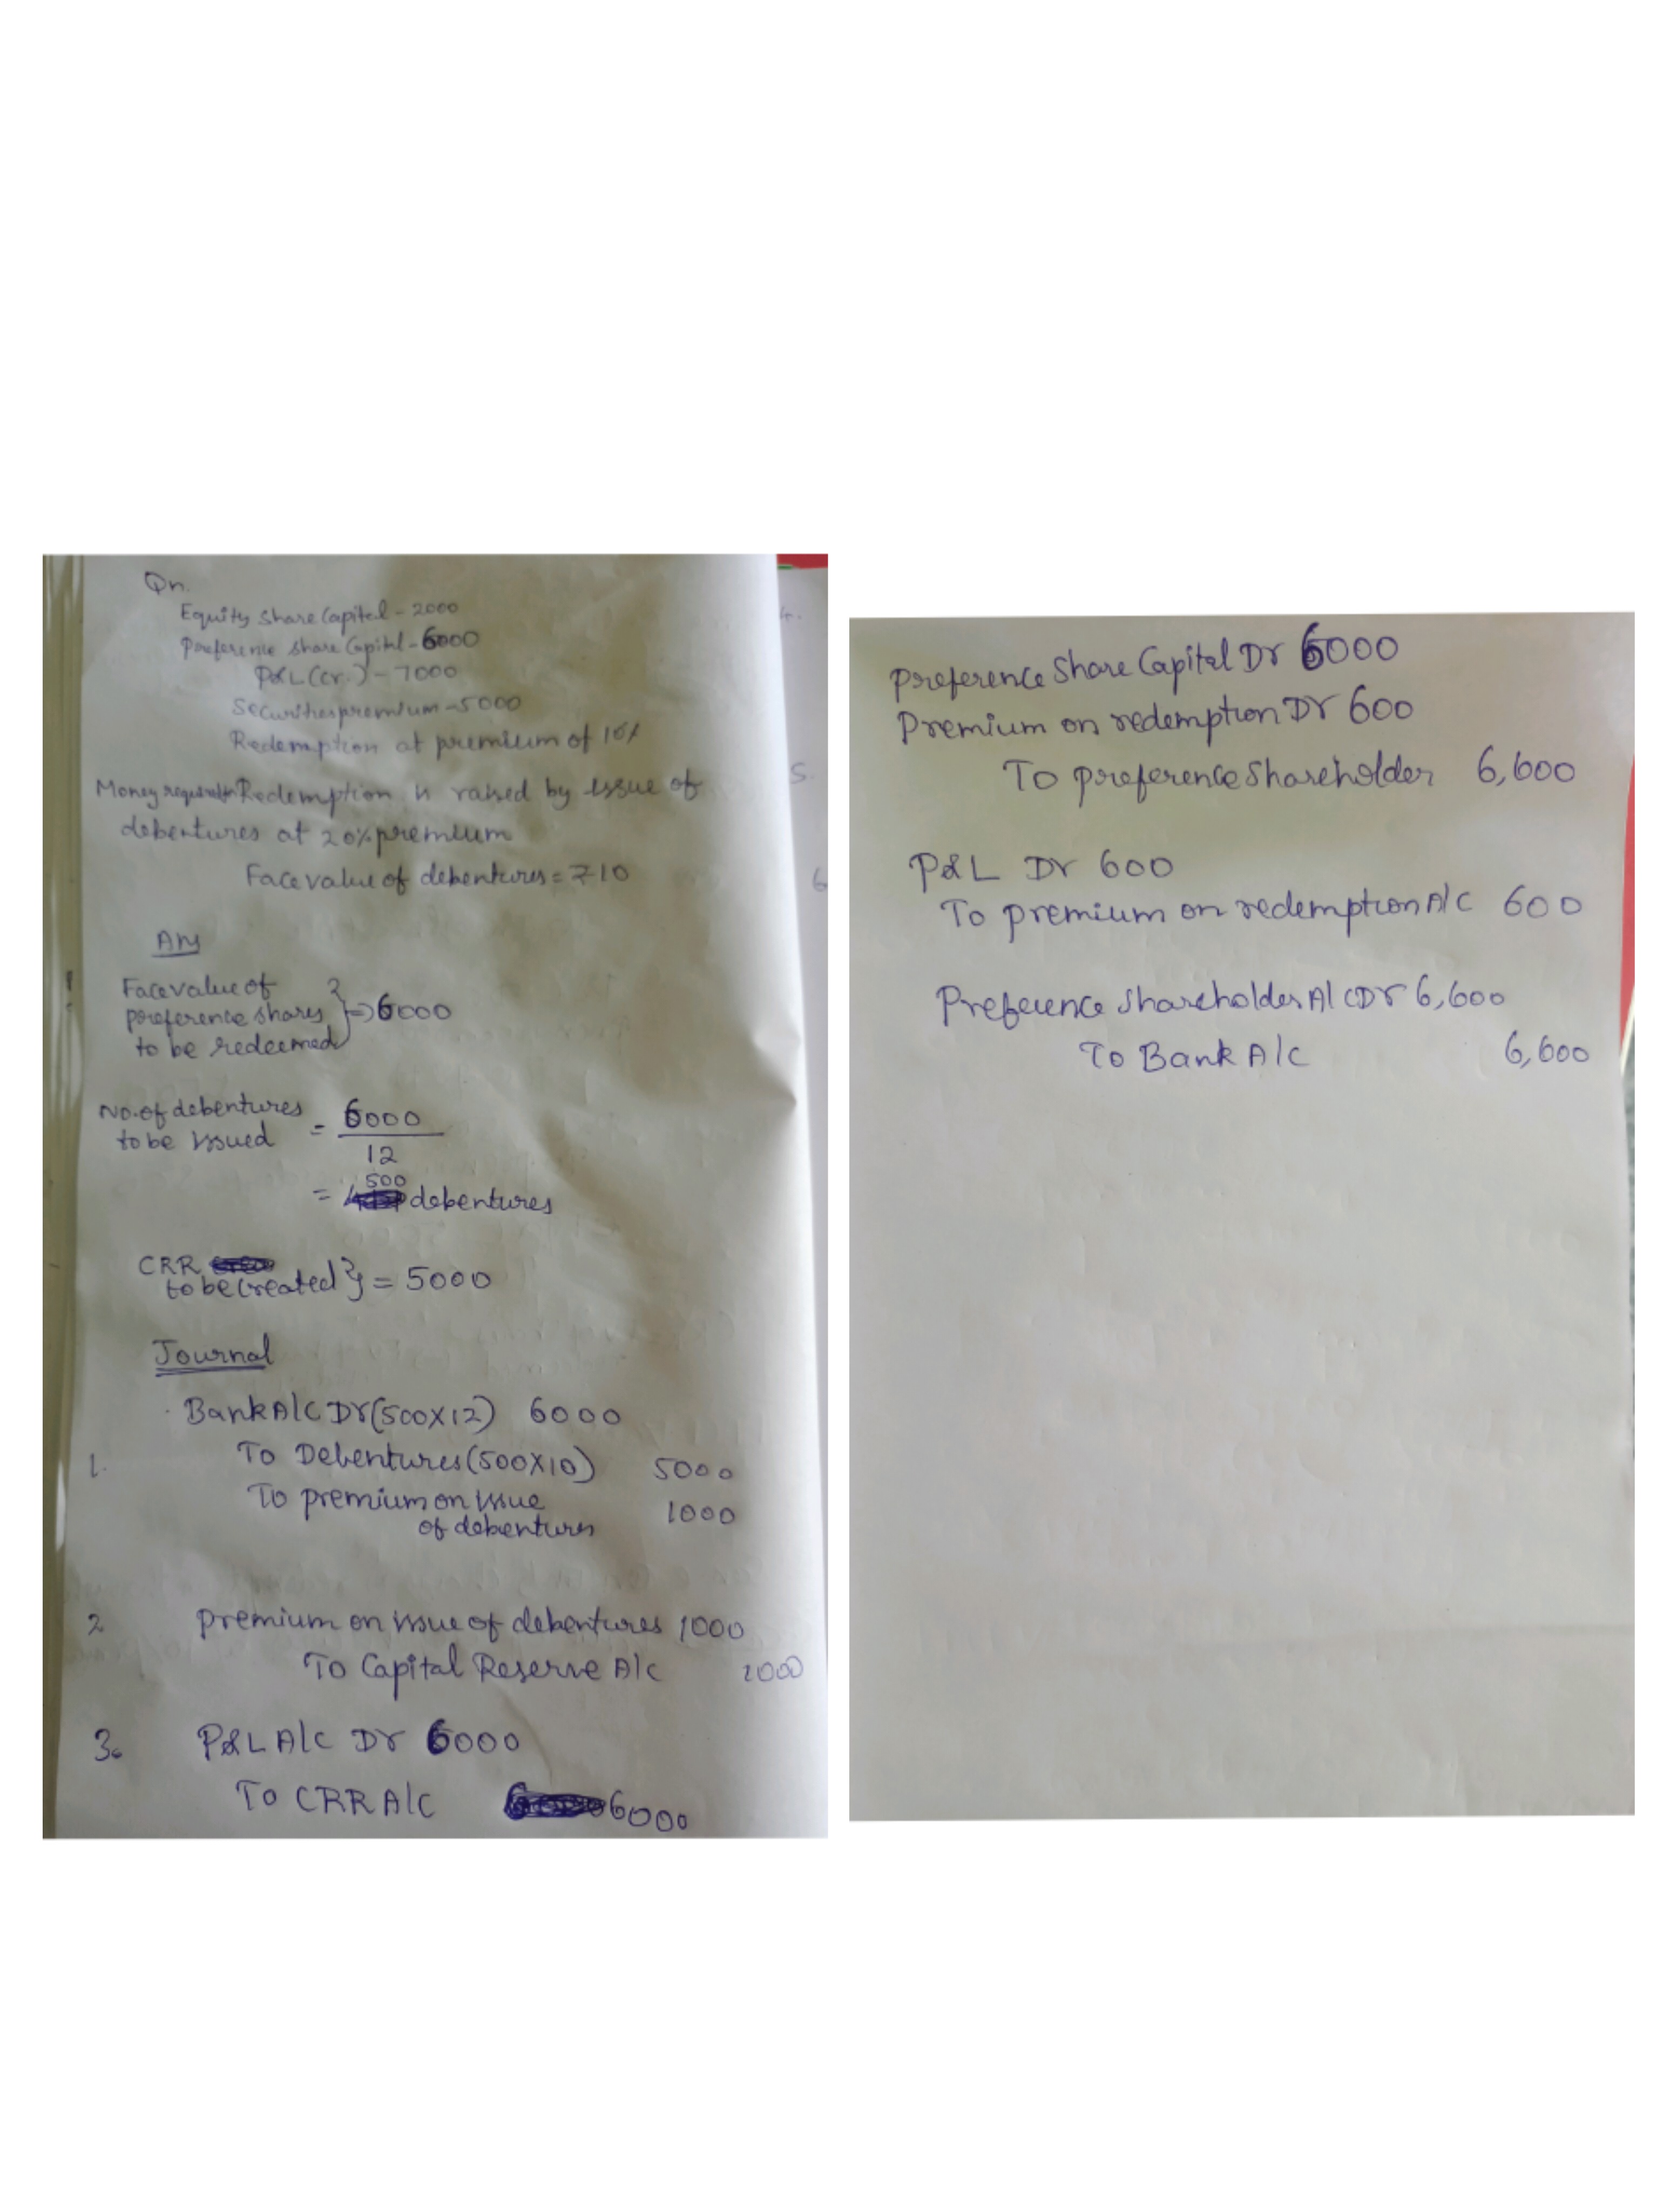 Qn.
Equity Share Capital - 2000
Preference share Capital - 6000
P&L (cr.) - 7000
Securities premium - 5000
Redemption at premium of 10%
Money required for Redemption is raised by issue of
debentures at 20% premium
Face value of debentures = ₹10
Ans
Face value of
preference shares } => 6000
to be redeemed
No. of debentures
to be issued = 6000
12
500
= debentures
CRR
to be created } = 5000
Journal
Bank A/c Dr (500X12) 6000
1. To Debentures (500X10) 5000
To premium on issue
of debentures 1000
2 premium on issue of debentures 1000
To Capital Reserve A/c 1000
3. P&L A/c Dr 6000
To CRR A/c 6000
4.
5.
6
Preference Share Capital Dr 6000
Premium on redemption Dr 600
To preference Shareholder 6,600
P&L Dr 600
To premium on redemption A/c 600
Preference shareholder A/c Dr 6,600
To Bank A/c 6,600